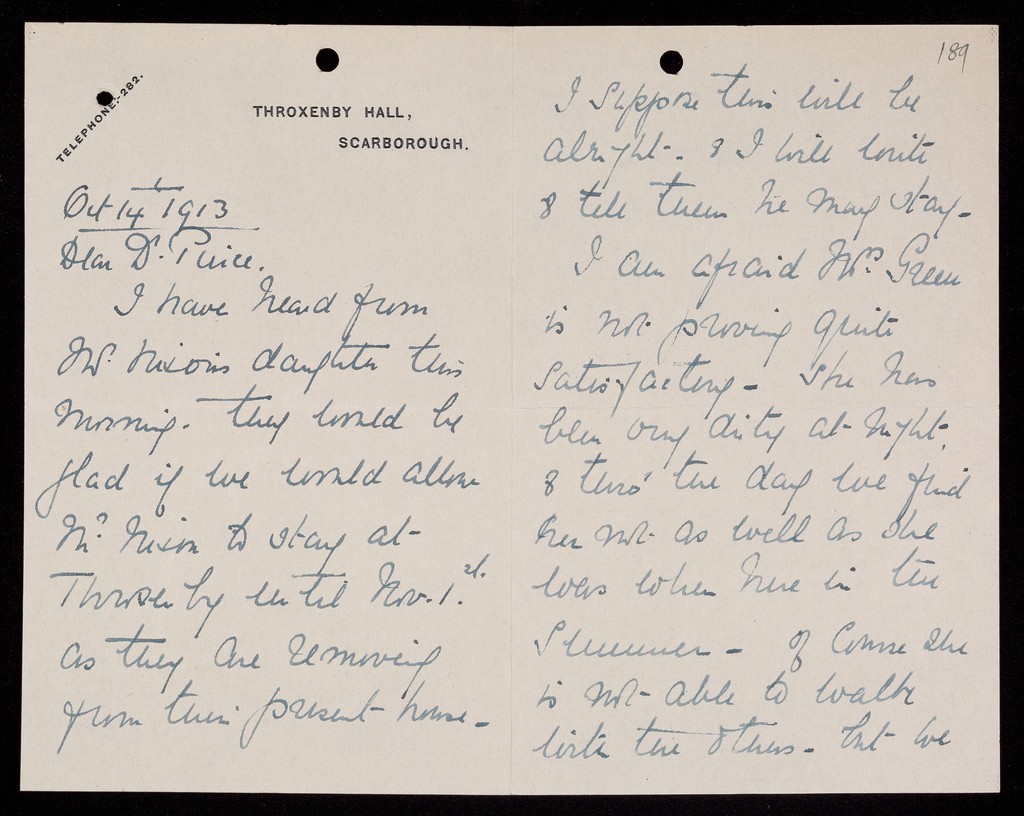 TELEPHONE:-282.
THROXENBY HALL,
SCARBOROUGH.
Oct 14th 1913
Dear Dr. Pierce.
I have heard from
Mr. Nixon's daughter this
morning. They would be
glad if we would allow
Mr. Nixon to stay at
Throxenby until Nov. 1st.
as they are removing
from their present house -
189
I suppose this will be
alright. & I will write
& tell them he may stay -
I am afraid Mrs. Green
is not proving quite
satisfactory - She has
been very dirty at night.
& thro' the day we find
her not as well as she
was when here in the
Summer - Of course she
is not able to walk
with the others - but we